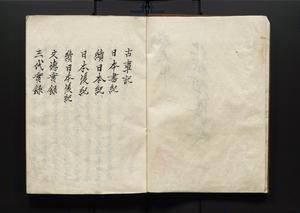 古事記
日本書紀
續日本紀
日本後紀
續日本後紀
文德實錄
三代實錄